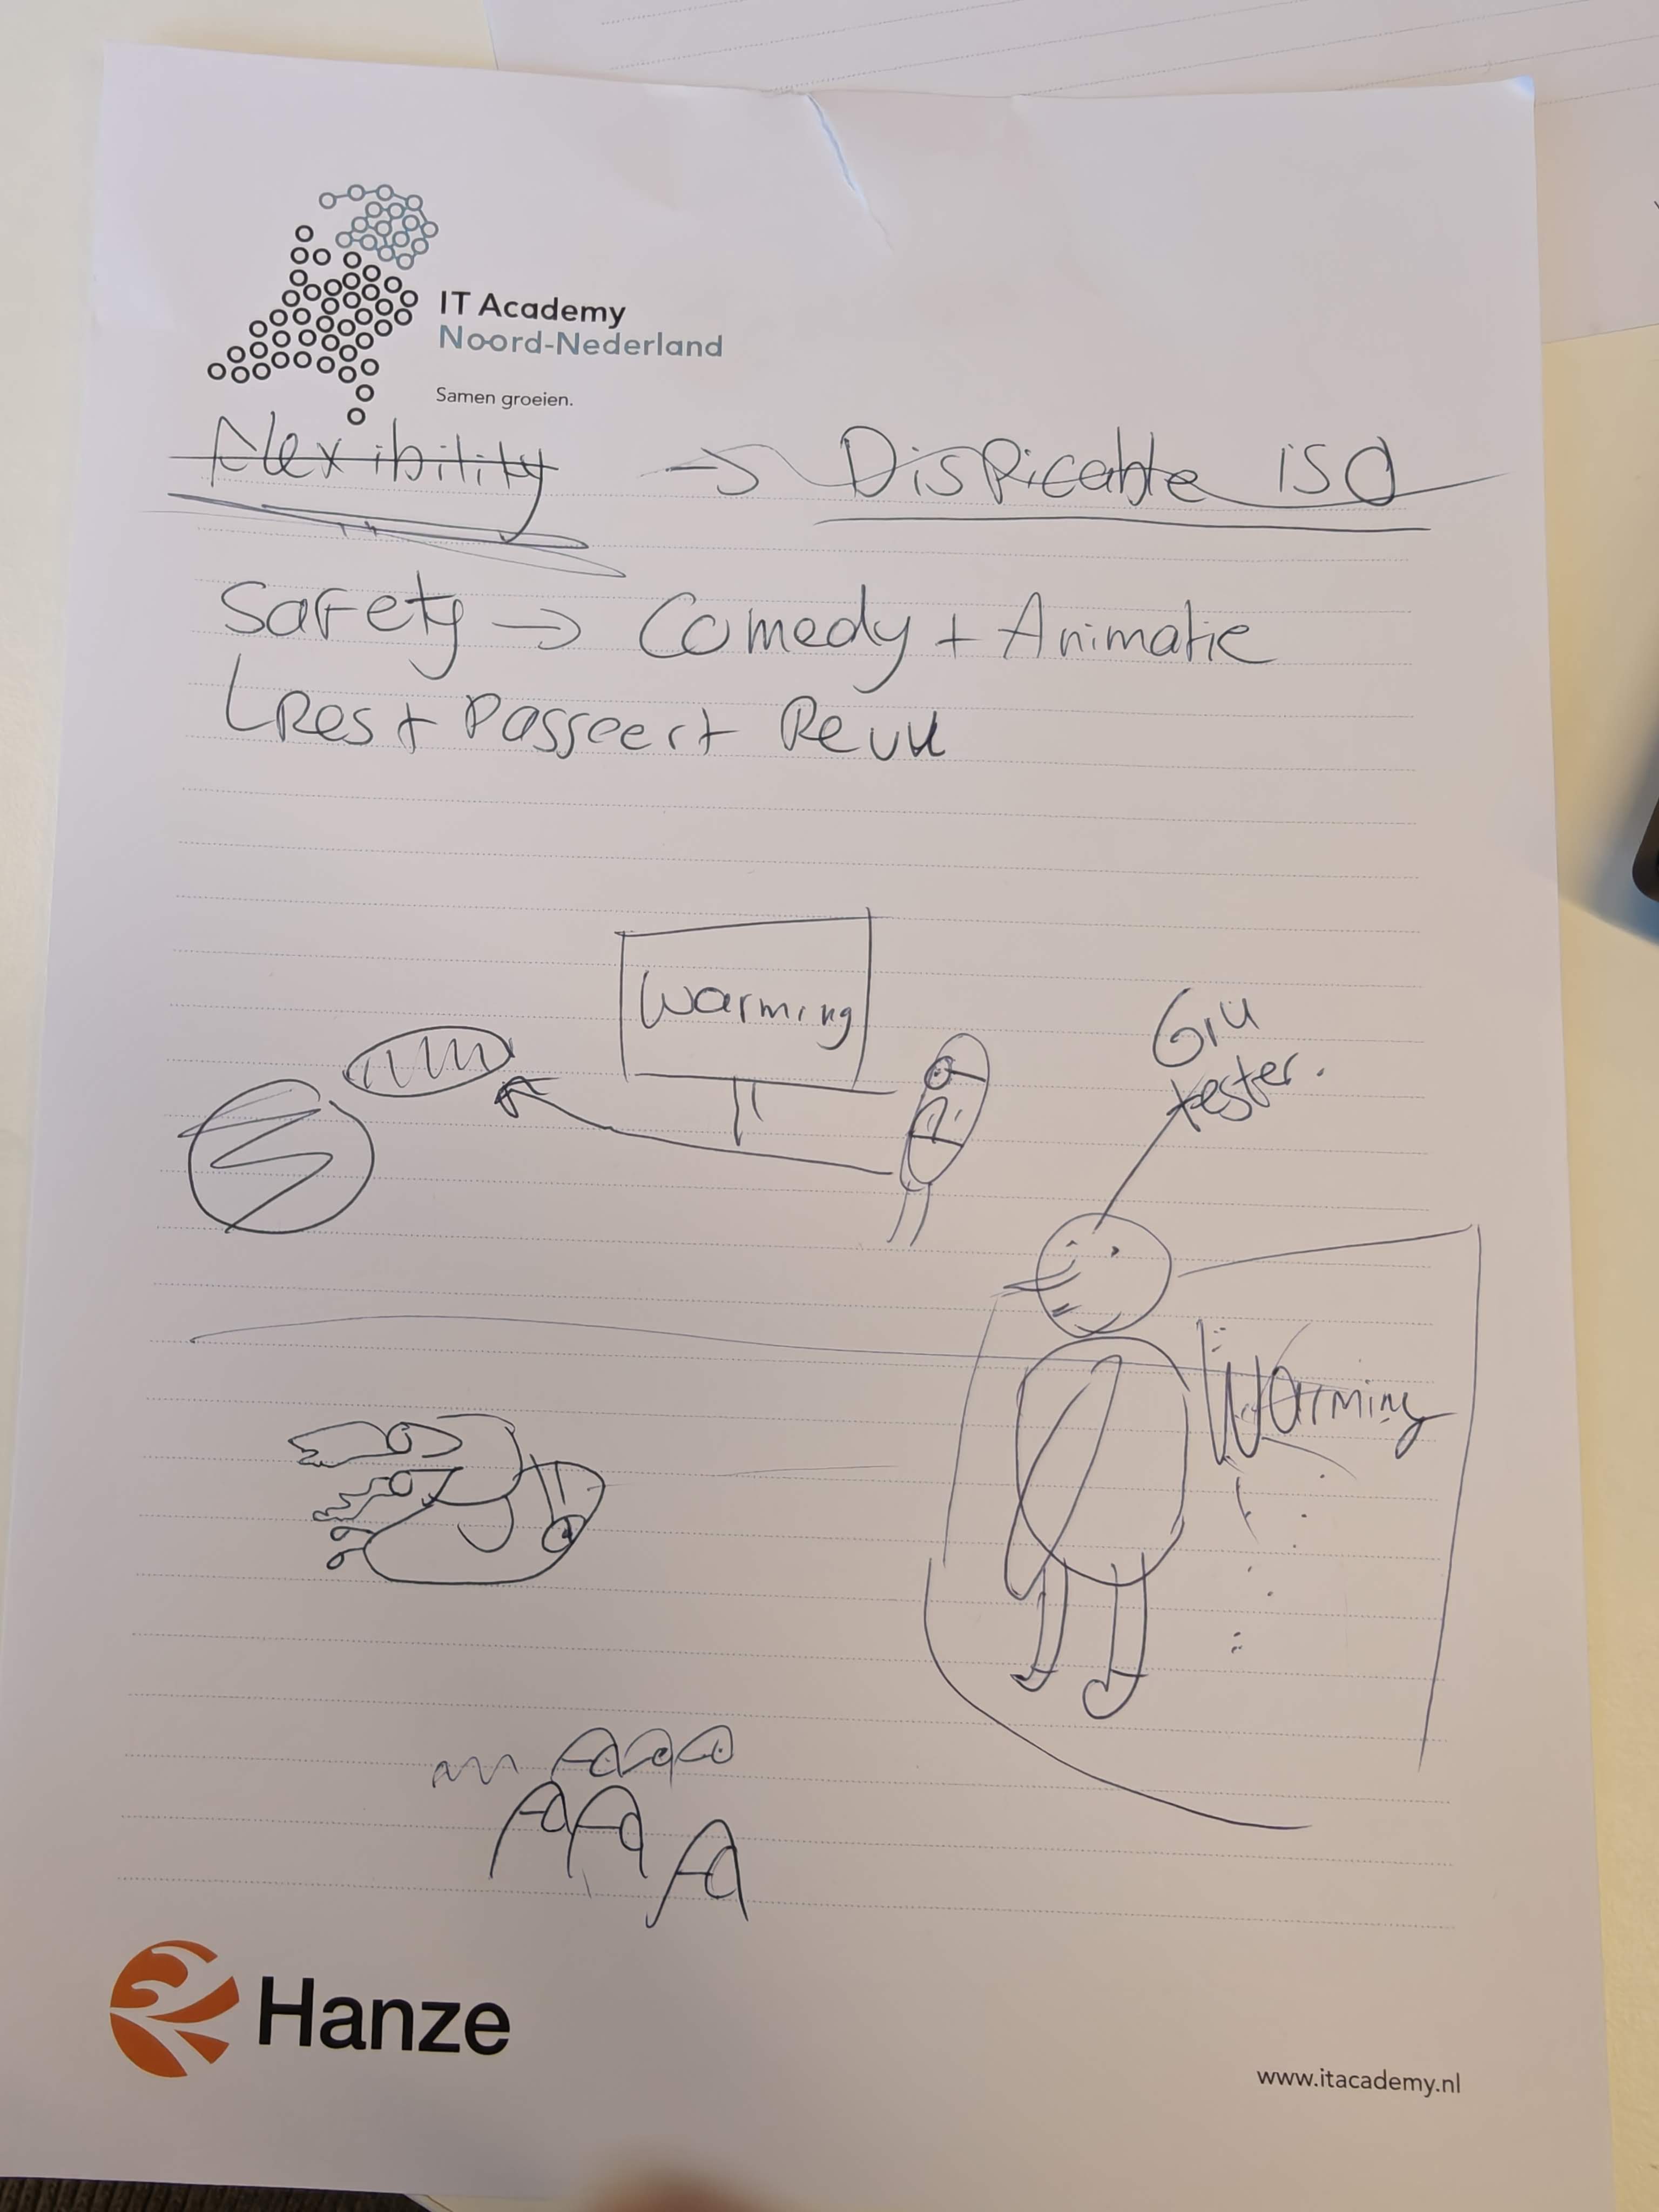 IT Academy
Noord-Nederland
Samen groeien.
Flexibility → Dispicable ISO
Safety → Comedy + Animatie
Rest Passeert Revu
Warming
Gru
tester.
Warming
Hanze
www.itacademy.nl